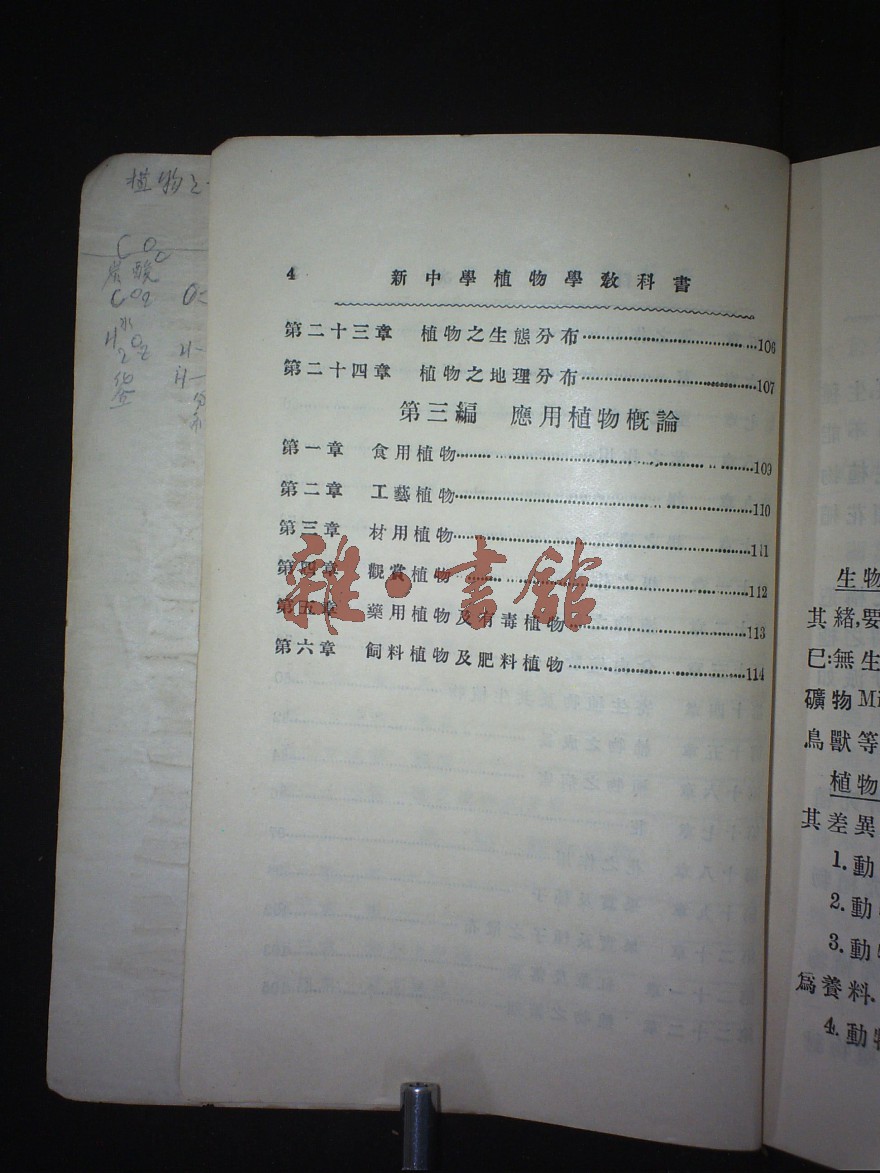 4 新中學植物學教科書
第二十三章 植物之生態分布……106
第二十四章 植物之地理分布……107
第三編 應用植物概論
第一章 食用植物……109
第二章 工藝植物……110
第三章 材用植物……111
第四章 觀賞植物……112
第五章 藥用植物及有毒植物……113
第六章 飼料植物及肥料植物……114
雜·書館
植物之
CO2
炭酸
CO2
水
H2O2
生物
其緒,要
巳:無生
礦物Mi
鳥獸等
植物
其差異
1.動
2.動
3.動
爲養料.
4.動物